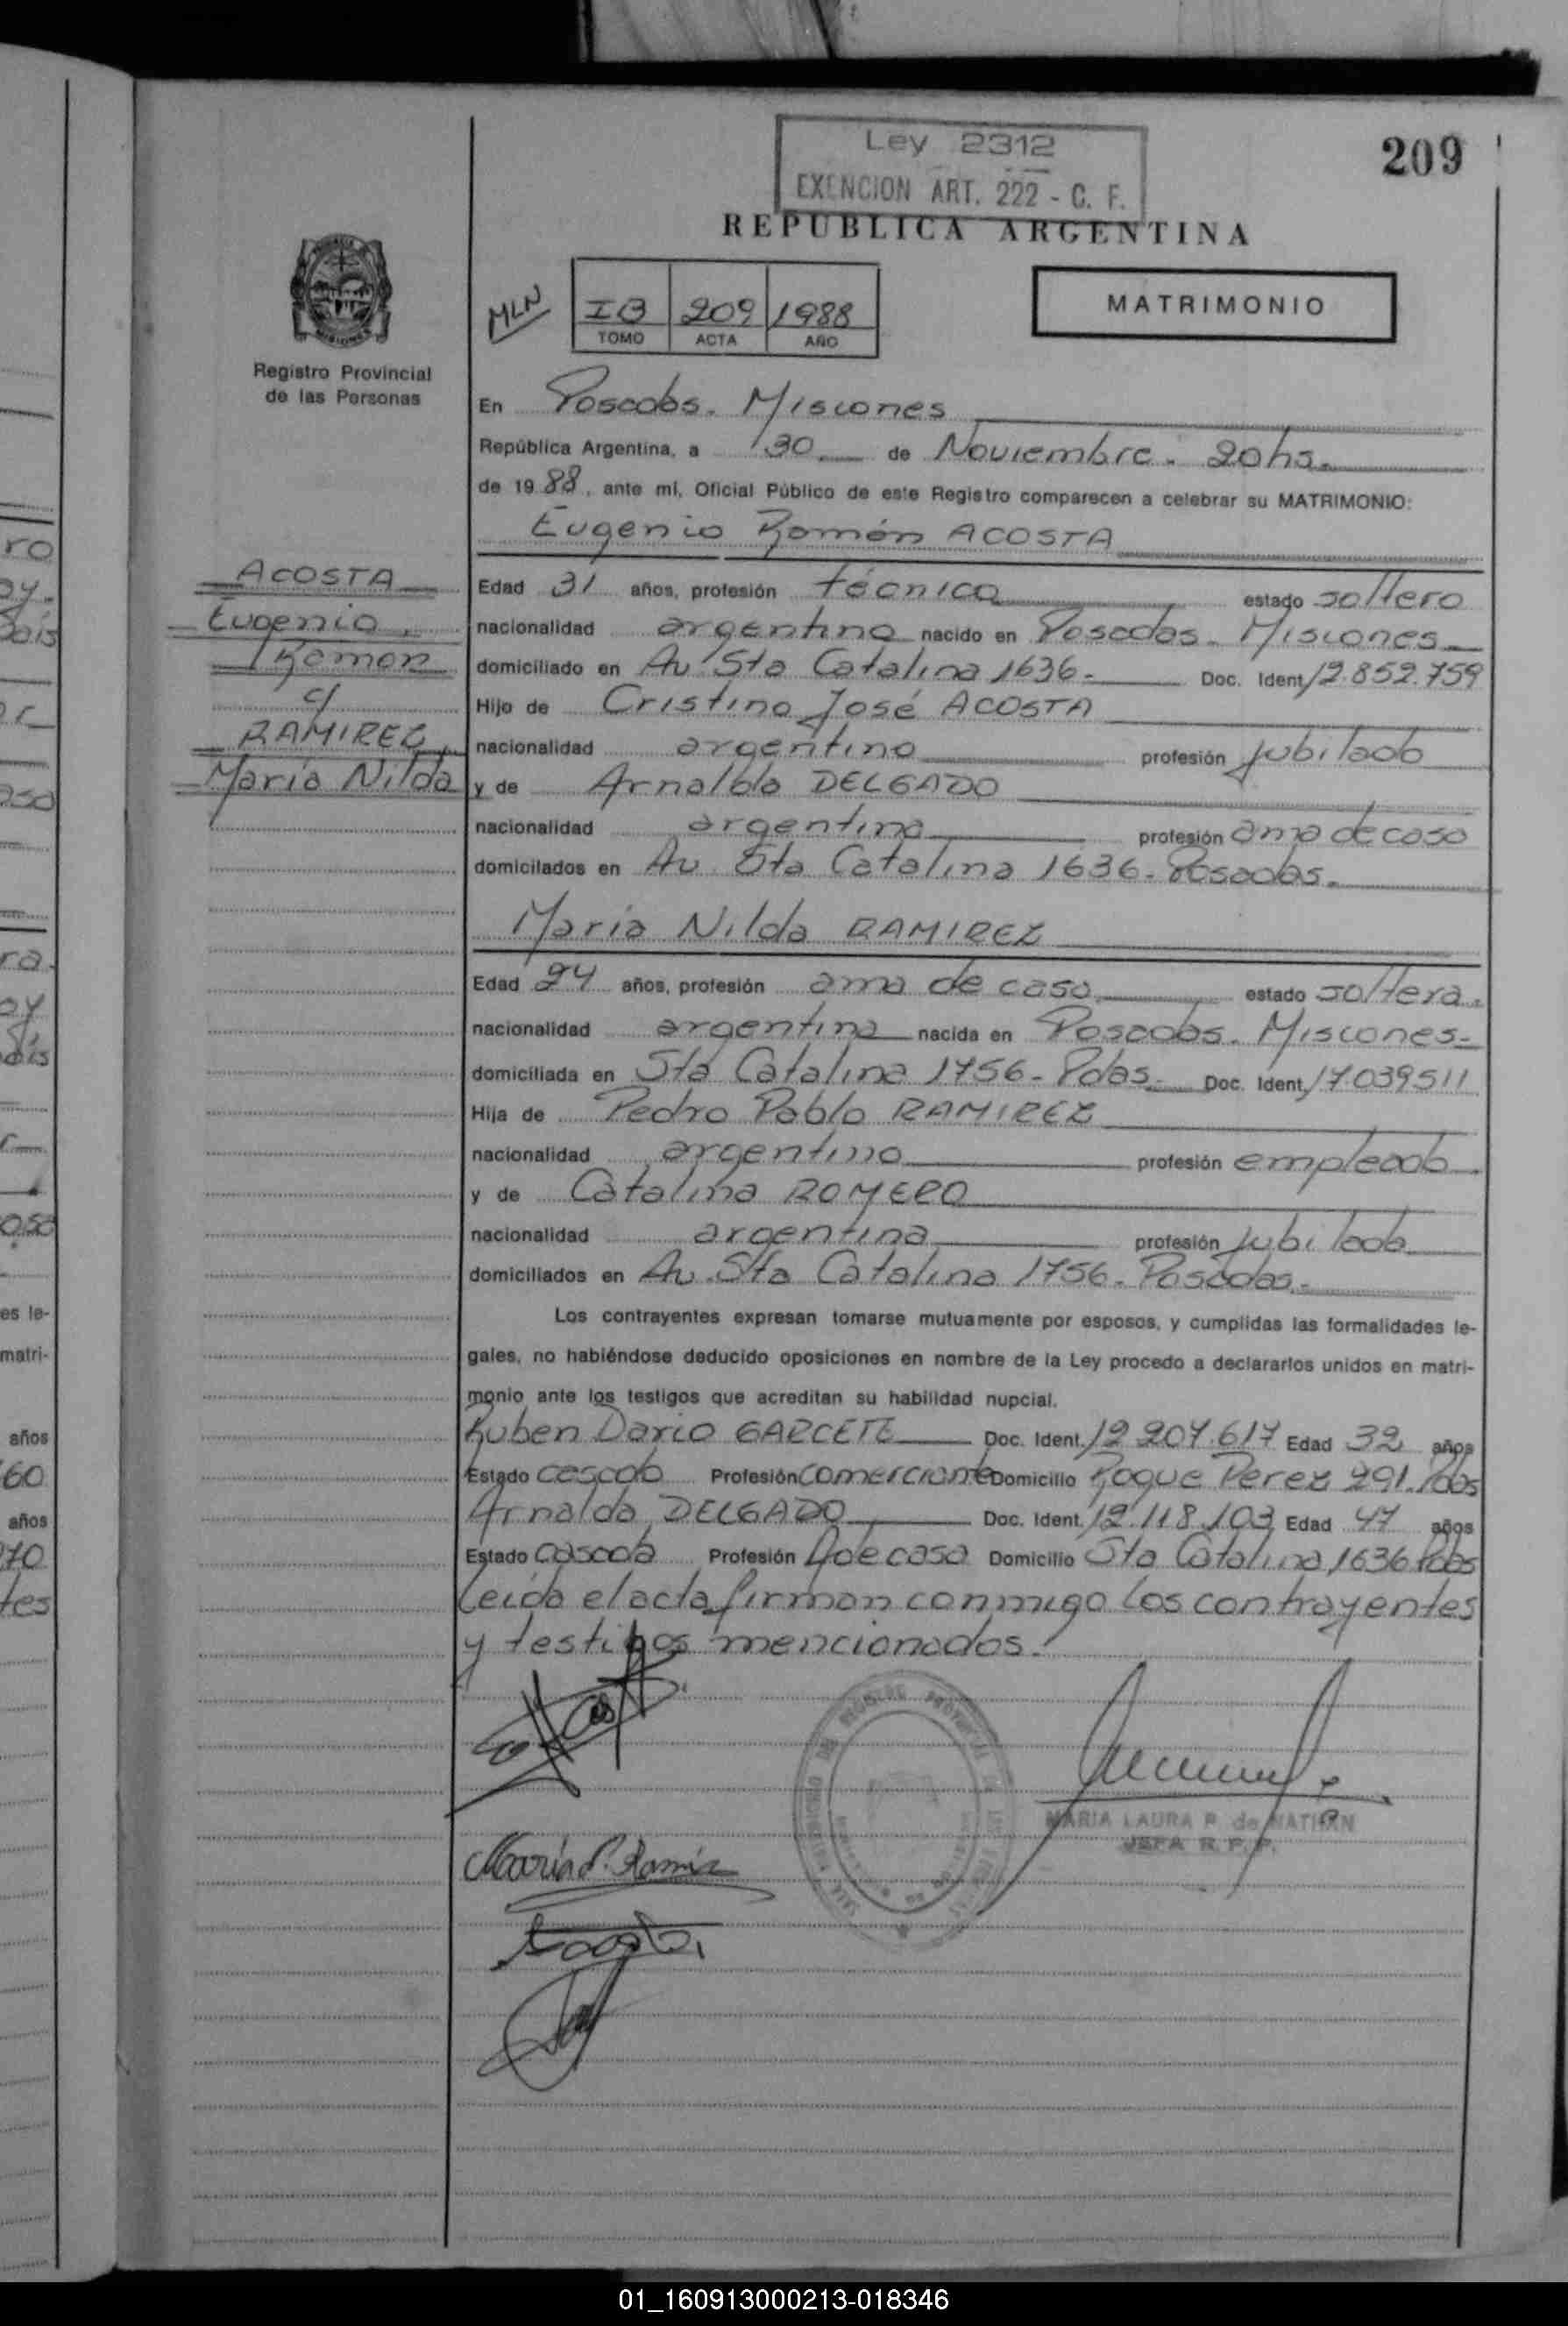 Ley 2312
EXENCION ART. 222 - C. F.
209
REPUBLICA ARGENTINA
MLN
IB 209 1988
TOMO ACTA AÑO
MATRIMONIO
Registro Provincial
de las Personas
En Posadas. Misiones
República Argentina, a 30 de Noviembre. 20hs.
de 1988, ante mí, Oficial Público de este Registro comparecen a celebrar su MATRIMONIO:
Eugenio Ramón ACOSTA
ACOSTA
Eugenio
Ramon
c/
RAMIREZ
María Nilda
Edad 31 años, profesión técnico estado soltero
nacionalidad argentino nacido en Posadas. Misiones
domiciliado en Av. Sta Catalina 1636. Doc. Ident. 12.852.759
Hijo de Cristino José ACOSTA
nacionalidad argentino profesión jubilado
y de Arnalda DELGADO
nacionalidad argentina profesión ama de casa
domicilados en Av. Sta Catalina 1636. Posadas.
María Nilda RAMIREZ
Edad 24 años, profesión ama de casa estado soltera.
nacionalidad argentina nacida en Posadas. Misiones.
domiciliada en Sta Catalina 1756. Pdas. Doc. Ident. 17.039511
Hija de Pedro Pablo RAMIREZ
nacionalidad argentino profesión empleado
y de Catalina ROMERO
nacionalidad argentina profesión jubilada
domiciliados en Av. Sta Catalina 1756. Posadas.
Los contrayentes expresan tomarse mutuamente por esposos, y cumplidas las formalidades le-
gales, no habiéndose deducido oposiciones en nombre de la Ley procedo a declararlos unidos en matri-
monio ante los testigos que acreditan su habilidad nupcial.
Ruben Dario GARCETE Doc. Ident. 12 207.617 Edad 32 años
Estado casado Profesión comerciante Domicilio Roque Perez 291. Pdas
Arnalda DELGADO Doc. Ident. 12.118.103 Edad 47 años
Estado casada Profesión A de casa Domicilio Sta Catalina 1636 Pdas
Leída el acta firman conmigo los contrayentes
y testigos mencionados.
MARIA LAURA P. de NATHAN
JEFA R.P.P.
01_160913000213-018346